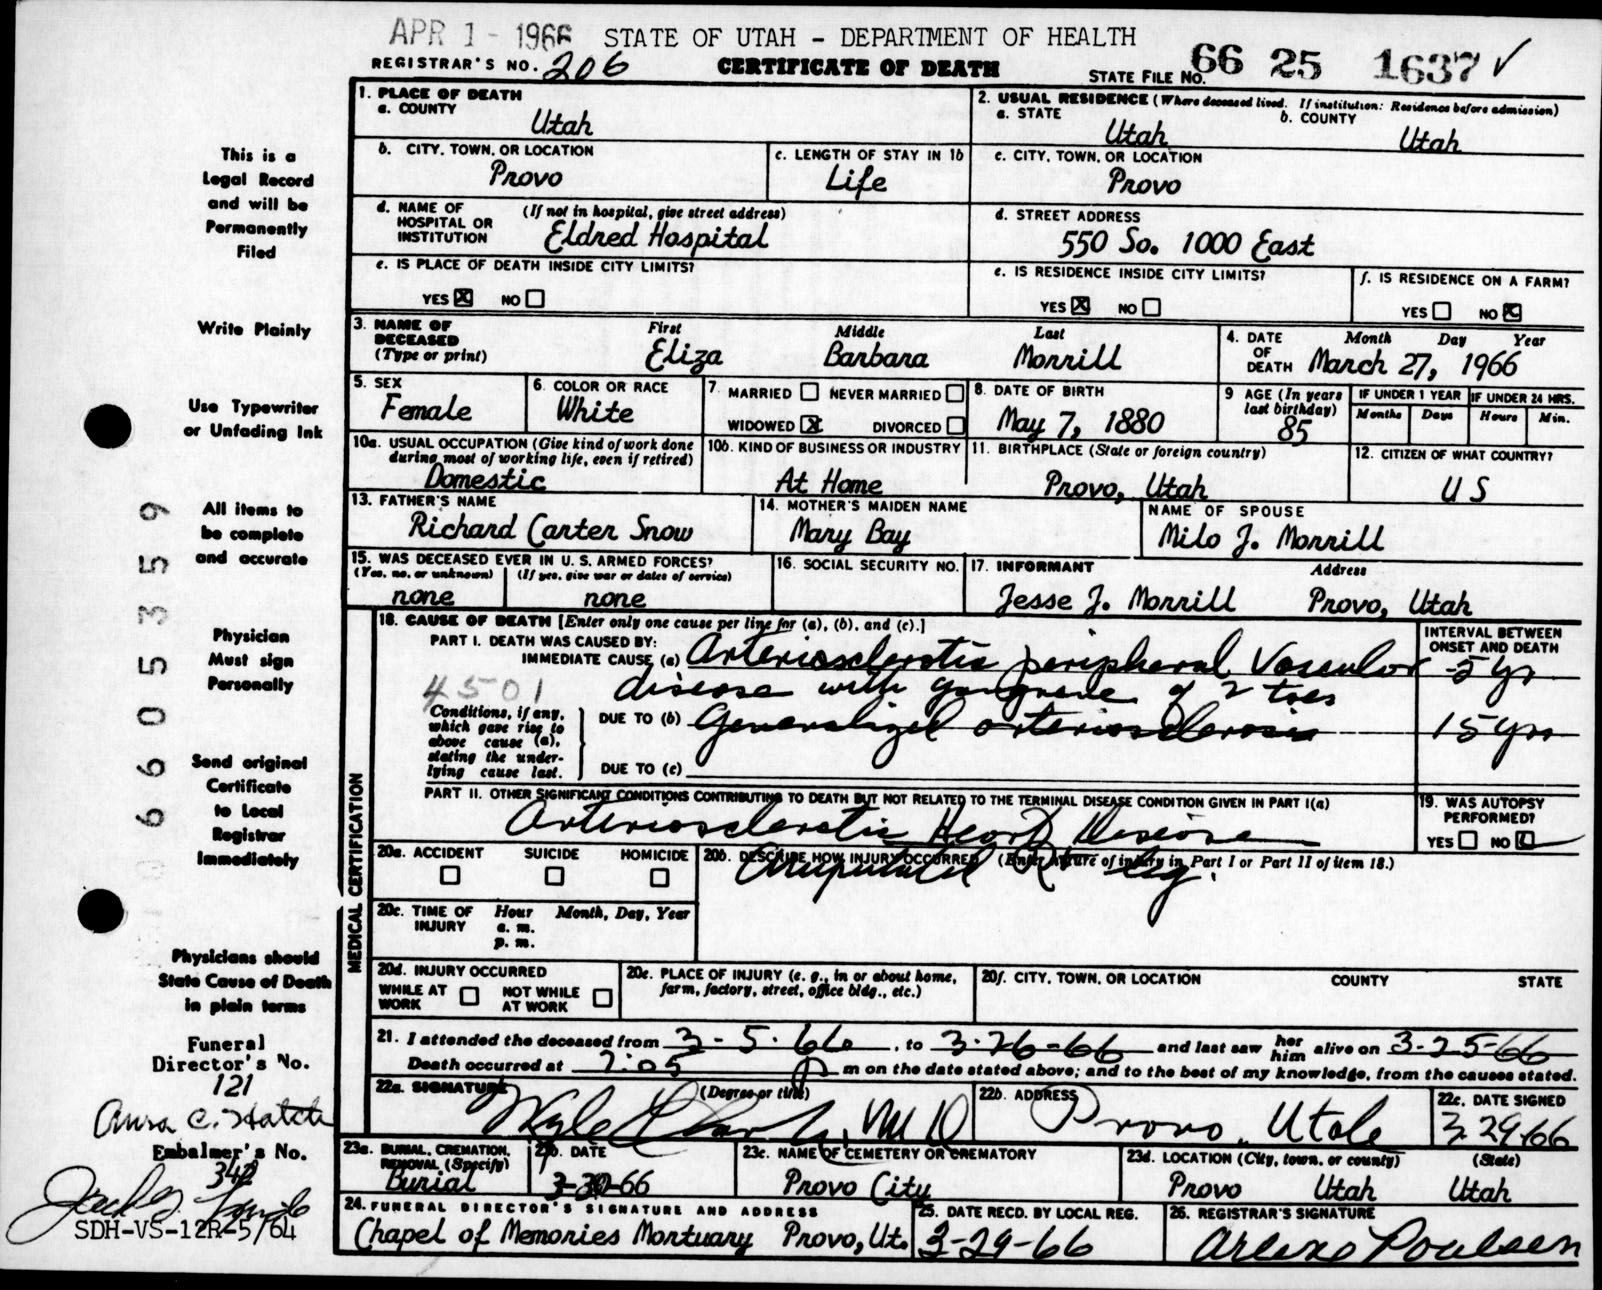 APR 1 - 1966 STATE OF UTAH - DEPARTMENT OF HEALTH
REGISTRAR'S NO. 206 CERTIFICATE OF DEATH STATE FILE NO. 66 25 1637 ✓
1. PLACE OF DEATH
a. COUNTY
Utah
2. USUAL RESIDENCE (Where deceased lived. If institution: Residence before admission)
a. STATE Utah b. COUNTY Utah
b. CITY, TOWN, OR LOCATION
Provo
c. LENGTH OF STAY IN 1b
Life
c. CITY, TOWN, OR LOCATION
Provo
d. NAME OF HOSPITAL OR INSTITUTION (If not in hospital, give street address)
Eldred Hospital
d. STREET ADDRESS
550 So. 1000 East
e. IS PLACE OF DEATH INSIDE CITY LIMITS?
YES X NO
e. IS RESIDENCE INSIDE CITY LIMITS?
YES X NO
f. IS RESIDENCE ON A FARM?
YES NO X
3. NAME OF DECEASED (Type or print)
First Middle Last
Eliza Barbara Morrill
4. DATE OF DEATH Month Day Year
March 27, 1966
5. SEX
Female
6. COLOR OR RACE
White
7. MARRIED NEVER MARRIED
WIDOWED X DIVORCED
8. DATE OF BIRTH
May 7, 1880
9 AGE (In years last birthday)
85
IF UNDER 1 YEAR
Months Days
IF UNDER 24 HRS.
Hours Min.
10a. USUAL OCCUPATION (Give kind of work done during most of working life, even if retired)
Domestic
10b. KIND OF BUSINESS OR INDUSTRY
At Home
11. BIRTHPLACE (State or foreign country)
Provo, Utah
12. CITIZEN OF WHAT COUNTRY?
US
13. FATHER'S NAME
Richard Carter Snow
14. MOTHER'S MAIDEN NAME
Mary Bay
NAME OF SPOUSE
Milo J. Morrill
15. WAS DECEASED EVER IN U.S. ARMED FORCES?
(Yes, no, or unknown) (If yes, give war or dates of service)
none none
16. SOCIAL SECURITY NO.
17. INFORMANT Address
Jesse J. Morrill Provo, Utah
MEDICAL CERTIFICATION
18. CAUSE OF DEATH [Enter only one cause per line for (a), (b), and (c).]
PART I. DEATH WAS CAUSED BY:
IMMEDIATE CAUSE (a) Arteriosclerotic peripheral Vascular
disease with gangrene of 2 toes
4501
INTERVAL BETWEEN ONSET AND DEATH
5 yr
Conditions, if any, which gave rise to above cause (a), stating the underlying cause last.
DUE TO (b) Generalized arteriosclerosis 15 yrs
DUE TO (c)
PART II. OTHER SIGNIFICANT CONDITIONS CONTRIBUTING TO DEATH BUT NOT RELATED TO THE TERMINAL DISEASE CONDITION GIVEN IN PART I(a)
Arteriosclerotic Heart Disease
19. WAS AUTOPSY PERFORMED?
YES NO
20a. ACCIDENT SUICIDE HOMICIDE
20b. DESCRIBE HOW INJURY OCCURRED (Enter nature of injury in Part I or Part II of item 18.)
Amputated R leg.
20c. TIME OF INJURY Hour Month, Day, Year
a. m.
p. m.
20d. INJURY OCCURRED
WHILE AT WORK NOT WHILE AT WORK
20e. PLACE OF INJURY (e. g., in or about home, farm, factory, street, office bldg., etc.)
20f. CITY, TOWN, OR LOCATION COUNTY STATE
21. I attended the deceased from 3-5-66, to 3-26-66 and last saw her him alive on 3-25-66
Death occurred at 7:05 P m on the date stated above; and to the best of my knowledge, from the causes stated.
22a. SIGNATURE (Degree or title)
MD
22b. ADDRESS
Provo, Utah
22c. DATE SIGNED
3-29-66
23a. BURIAL, CREMATION, REMOVAL (Specify)
Burial
23b. DATE
3-30-66
23c. NAME OF CEMETERY OR CREMATORY
Provo City
23d. LOCATION (City, town, or county) (State)
Provo Utah Utah
24. FUNERAL DIRECTOR'S SIGNATURE AND ADDRESS
Chapel of Memories Mortuary Provo, Ut.
25. DATE RECD. BY LOCAL REG.
3-29-66
26. REGISTRAR'S SIGNATURE
Arlene Poulsen
This is a
Legal Record
and will be
Permanently
Filed
Write Plainly
Use Typewriter
or Unfading Ink
All items to
be complete
and accurate
Physician
Must sign
Personally
Send original
Certificate
to Local
Registrar
Immediately
Physicians should
State Cause of Death
in plain terms
Funeral
Director's No.
121
Embalmer's No.
342
SDH-VS-12R-5/64
6605359